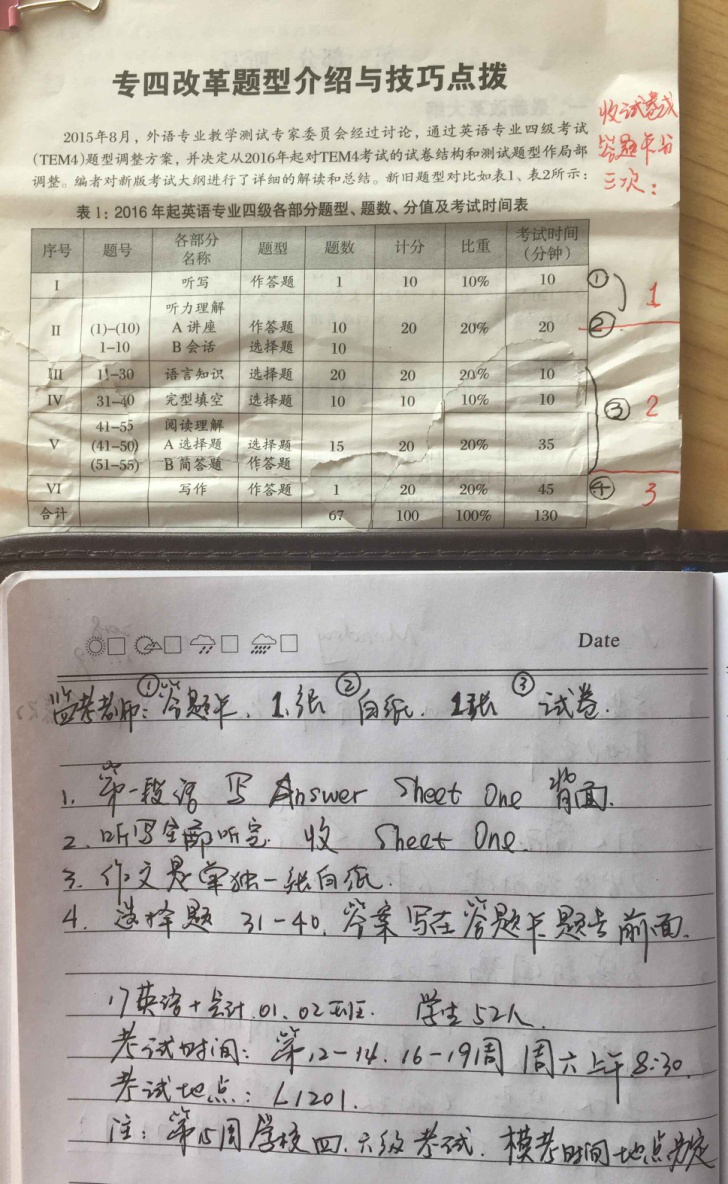 专四改革题型介绍与技巧点拨
2015年8月，外语专业教学测试专家委员会经过讨论，通过英语专业四级考试
(TEM4)题型调整方案，并决定从2016年起对TEM4考试的试卷结构和测试题型作局部
调整。编者对新版考试大纲进行了详细的解读和总结。新旧题型对比如表1、表2所示：
收试卷或
答题卡分
三次：
表1：2016年起英语专业四级各部分题型、题数、分值及考试时间表
序号 题号 各部分名称 题型 题数 计分 比重 考试时间（分钟）
I 听写 作答题 1 10 10% 10 ①
1
II 听力理解
(1)–(10) A 讲座 作答题 10 20 20% 20 ②
1–10 B 会话 选择题 10
III 11–30 语言知识 选择题 20 20 20% 10
IV 31–40 完型填空 选择题 10 10 10% 10
③ 2
41–55 阅读理解
V (41–50) A 选择题 选择题 15 20 20% 35
(51–55) B 简答题 作答题
VI 写作 作答题 1 20 20% 45 ④ 3
合计 67 100 100% 130
Date
监考老师：①答题卡．1张 ②白纸．1张 ③试卷．
1. 第一段话 写 Answer Sheet One 背面．
2. 听写全部听完 收 Sheet One．
3. 作文是单独一张白纸．
4. 选择题 31-40．答案写在答题卡题号前面．
17英语+会计．01、02班． 学生52人．
考试时间：第12-14．16-19周 周六上午8:30．
考试地点：L1201．
注：第15周学校四．六级考试．模考时间地点另定